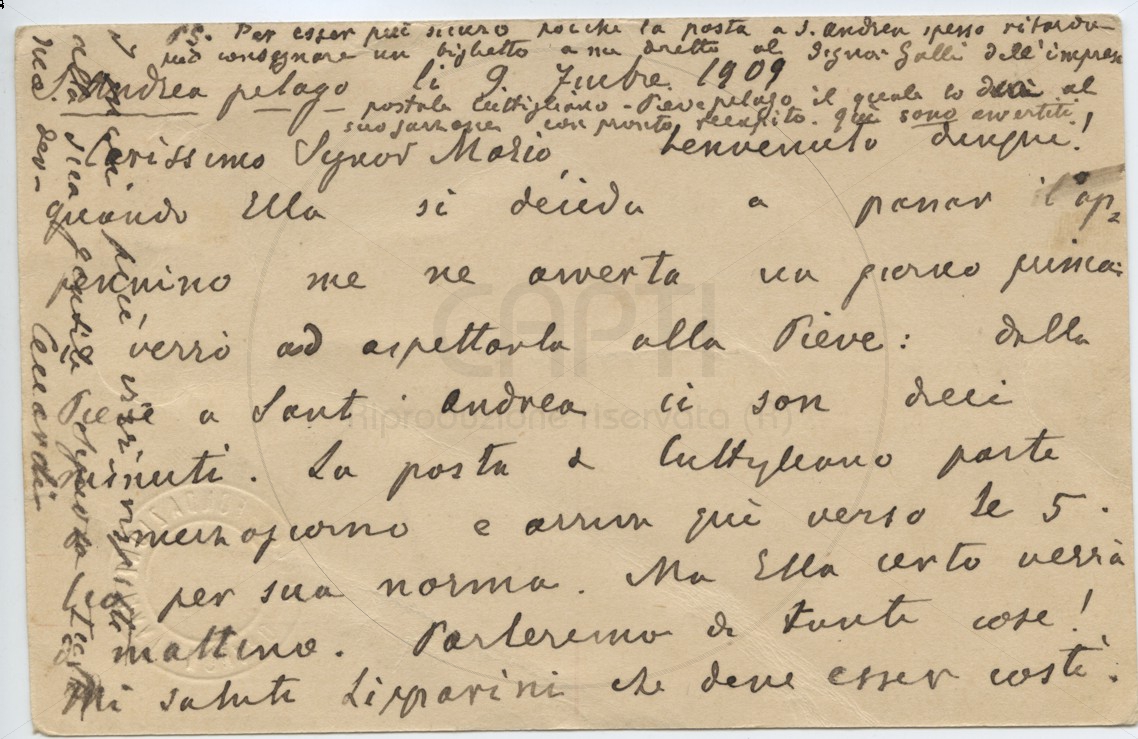 PS. Per esser più sicuro poiché la posta a S. Andrea spesso ritarda
può consegnare un biglietto a me diretto al Signor Galli dell'impresa
postale Cutigliano - Pievepelago il quale lo darà al
suo garzone con pronto recapito. Qui sono avvertiti
S. Andrea pelago li 9 7mbre 1909
Carissimo Signor Mario benvenuto dunque!
quando Ella si decida a passar l'ap=
pennino me ne avverta un giorno prima:
verrò ad aspettarla alla Pieve: dalla
Pieve a Sant'Andrea ci son dieci
minuti. La posta a Cutigliano parte
mezzogiorno e arriva qui verso le 5.
per sua norma. Ma Ella certo verrà
mattino. Parleremo di tante cose!
Mi saluti Lipparini che deve esser costì.
più vivi
alla sua gentile Signora
suo dev.
CAPTI
Riproduzione riservata (R)